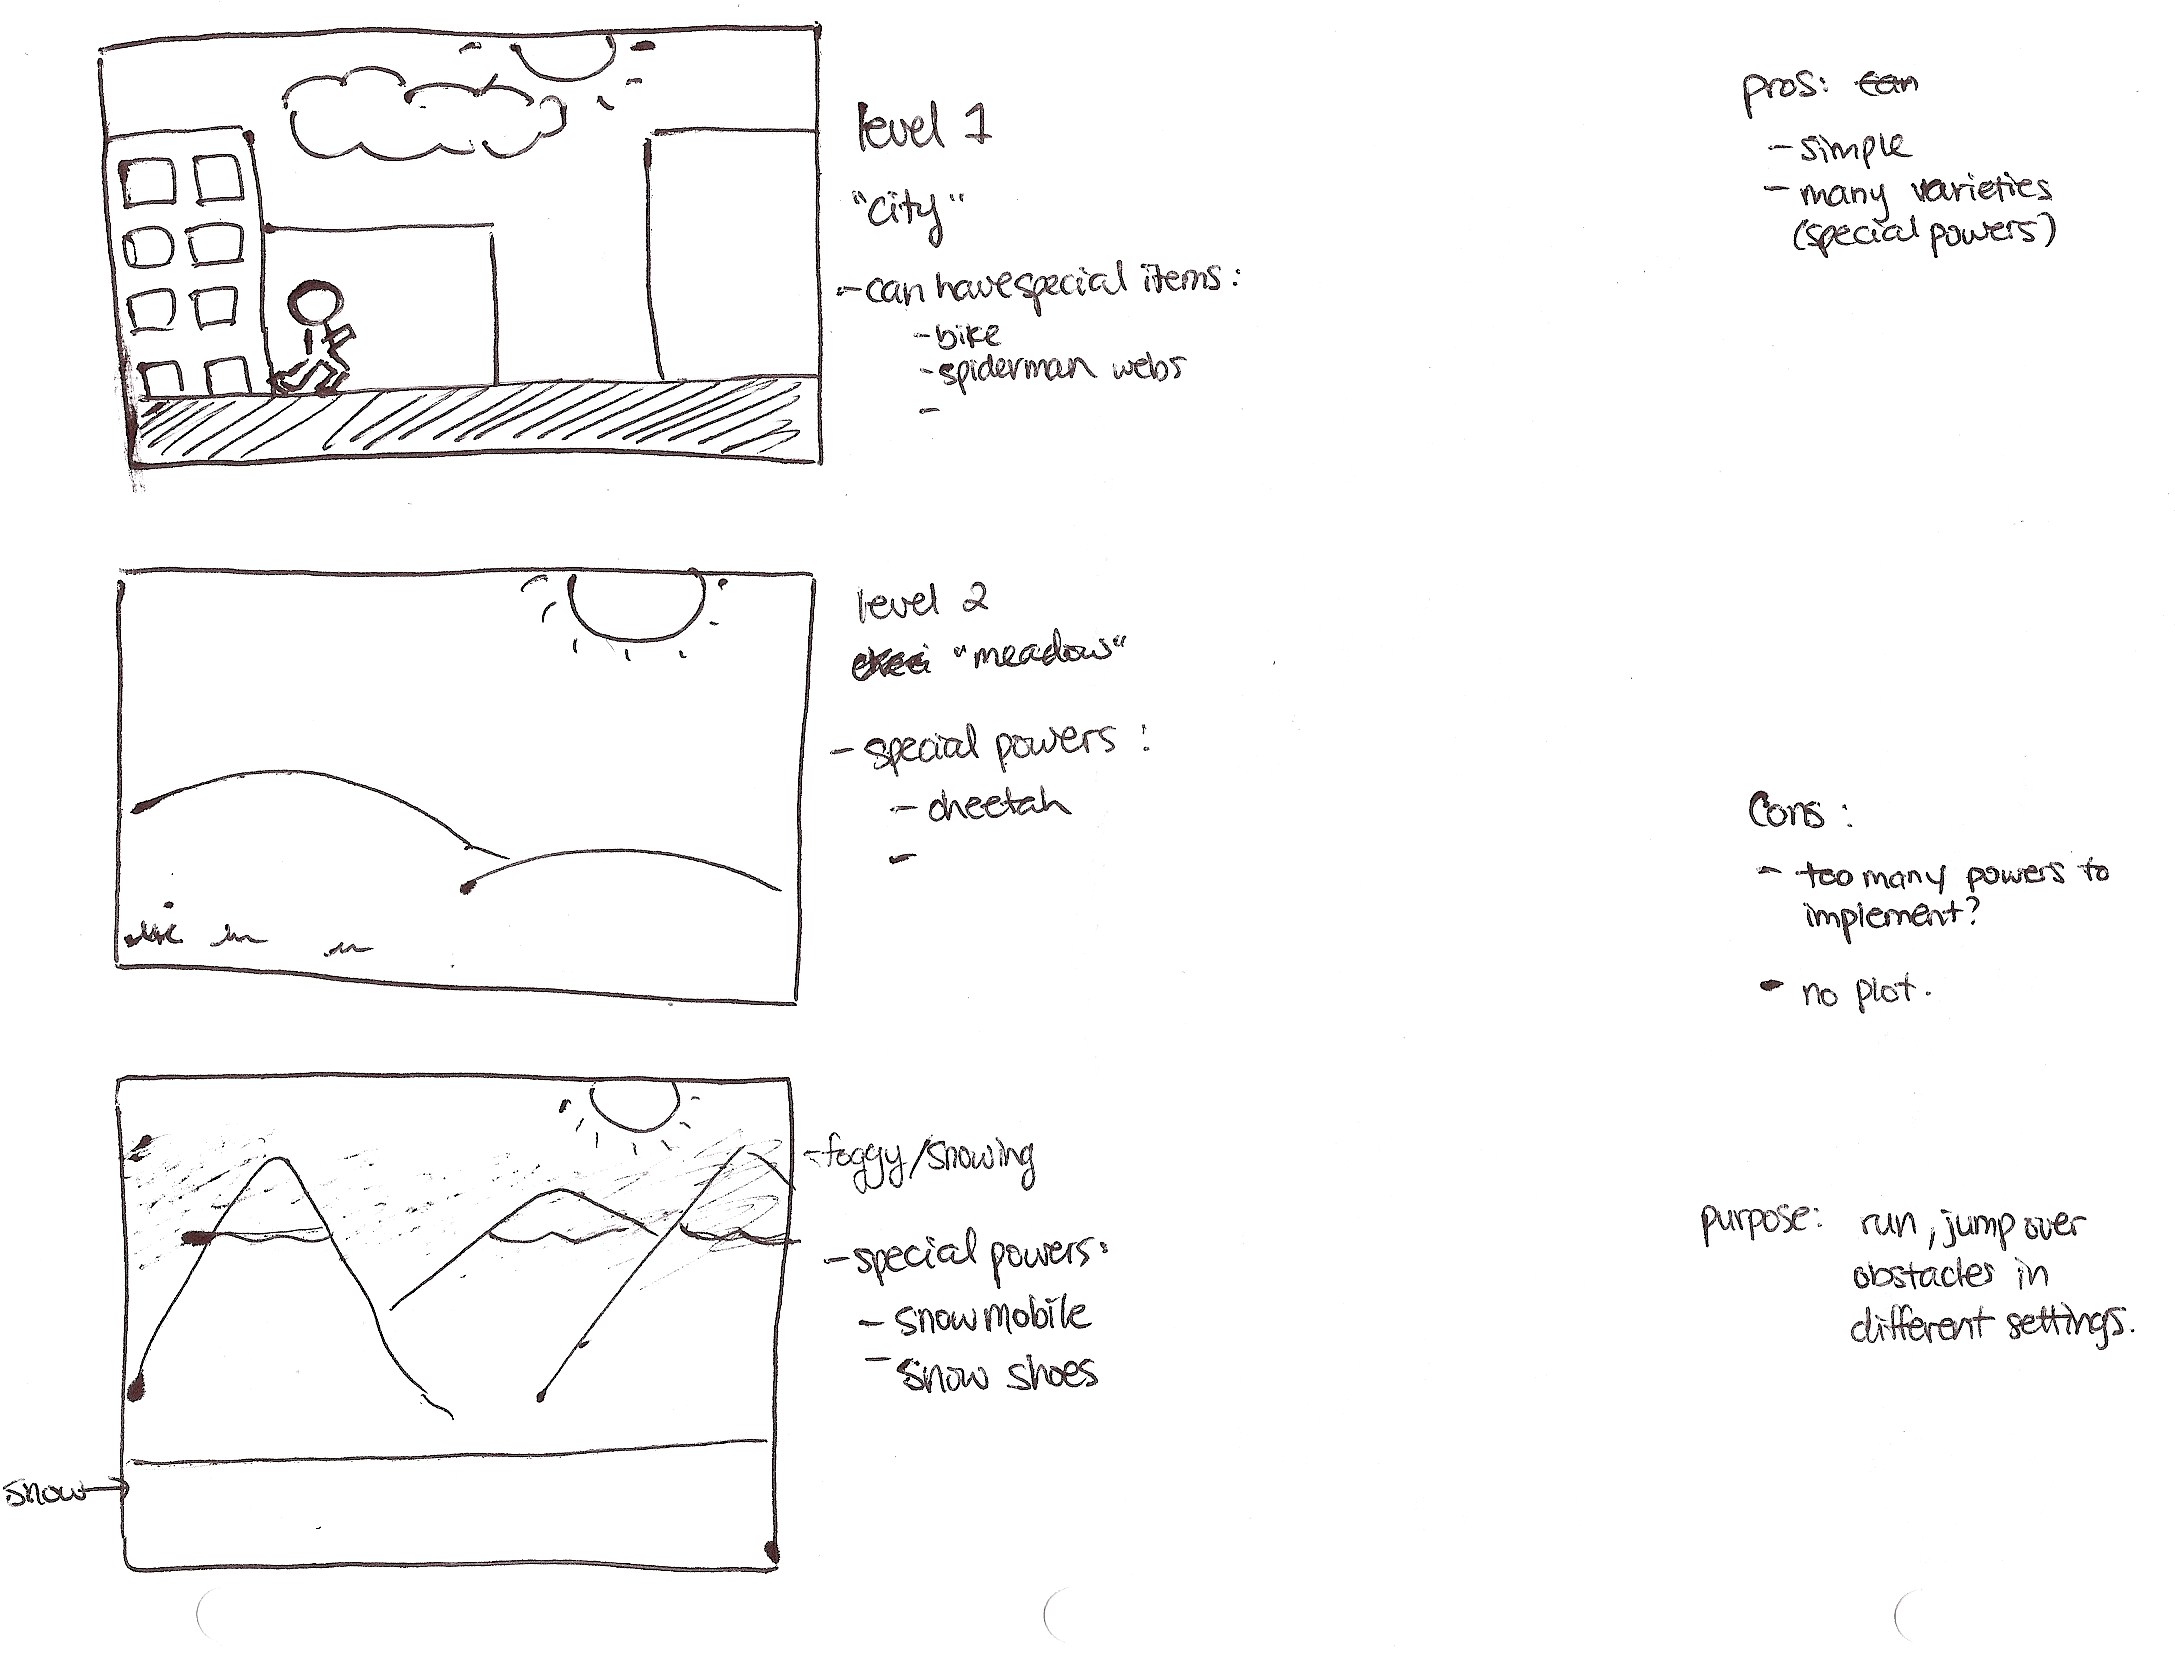 level 1
"city"
- can have special items:
- bike
- spiderman webs
-
level 2
"meadow"
- special powers:
- cheetah
-
- foggy/snowing
- special powers:
- snowmobile
- snow shoes
snow
pros: can
- simple
- many varieties
(special powers)
Cons:
- too many powers to
implement?
- no plot.
purpose: run, jump over
obstacles in
different settings.